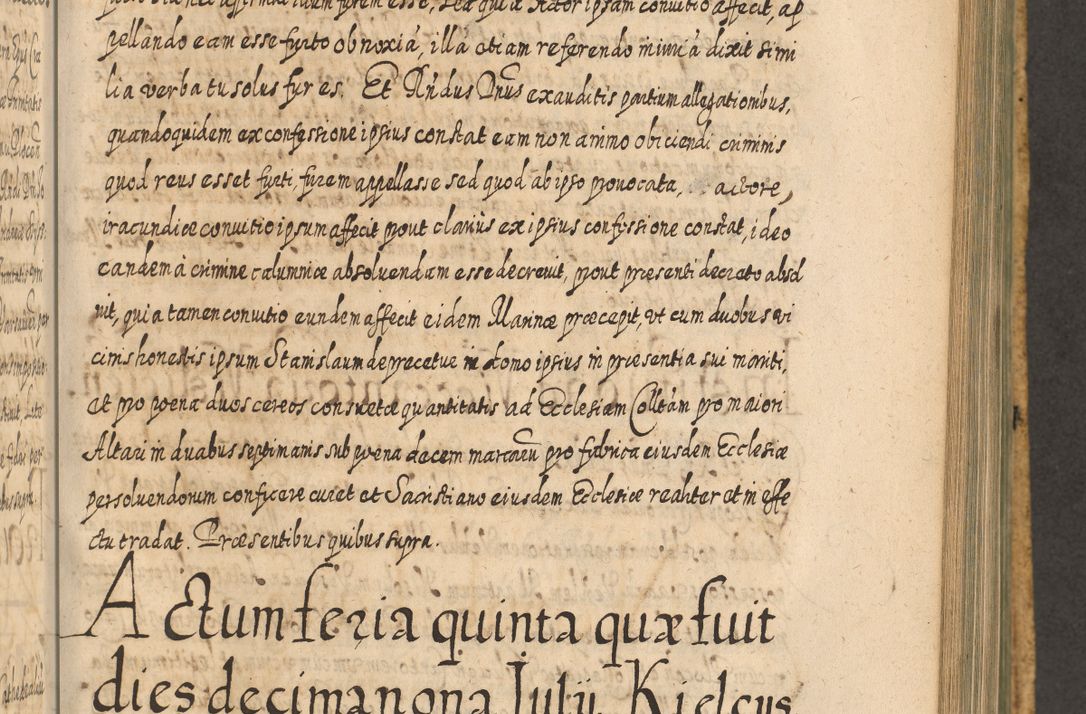 pellando eam esse furto obnoxiá, illá etiam referendo minuá dixit simi
lia verba tu solus fur es. Et Rńdus Dńus exauditis partium allegationibus,
quandoquidem ex confessione ipsius constat eam non animo obiiciendi criminis
quod reus esset furti, furem appellasse sed quod ab ipso provocata, actore,
iracundiæ convitio ipsum affecit prout clariùs ex ipsius confessione constat, ideo
eandem à crimine calumniæ absolvendam esse decrevit, prout præsenti decreto absol
vit, quia tamen convitio eundem affecit eidem Marinæ præcepit, ut cum duobus vi
cinis honestis ipsum Stanislaum deprecetur in domo ipsius in præsentia sui mariti,
et pro poena duos cereos consuetæ quantitatis ad Ecclesiam Colltám pro maiori
Altari in duabus septimanis sub poena decem marcarum pro fabrica eiusdem Ecclesiæ
persolvendorum conficere curet et Sacristiano eiusdem Ecclesiæ realiter et in effe
ctu tradat. Præsentibus quibus supra.
Actum feria quinta quæ fuit
dies decima nona Julij Kielcys